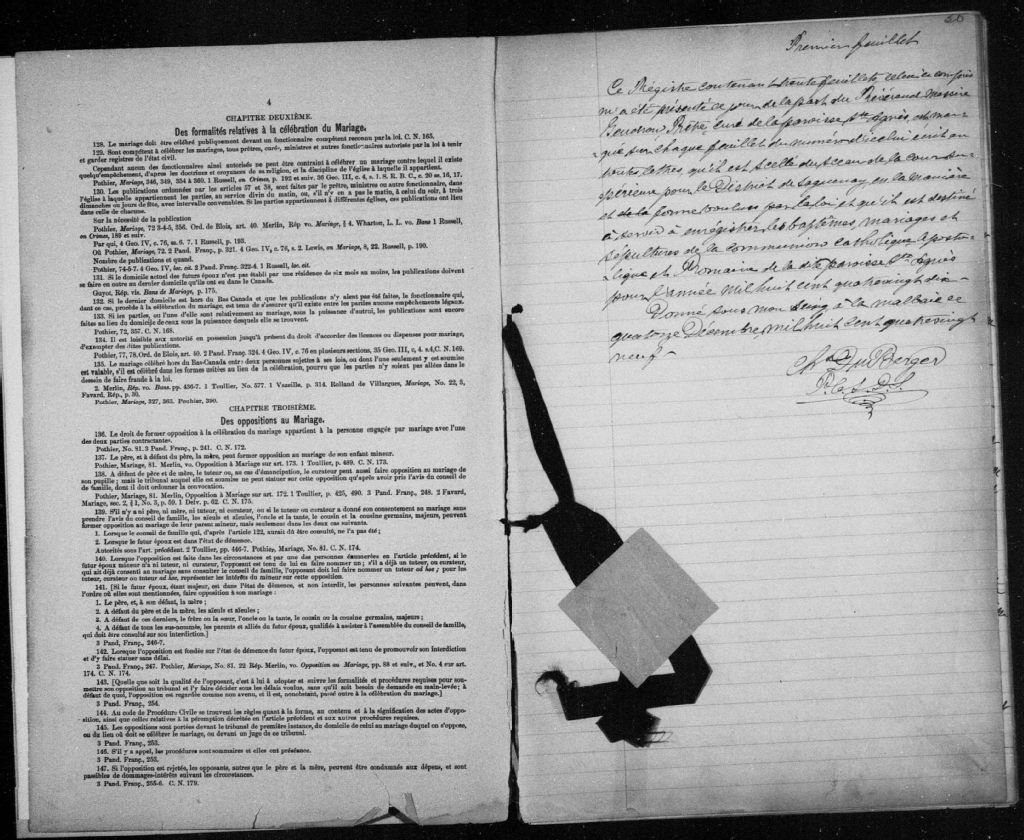 4
CHAPITRE DEUXIÈME.
Des formalités relatives à la célébration du Mariage.
128. Le mariage doit être célébré publiquement devant un fonctionnaire compétent reconnu par la loi. C. N. 165.
129. Sont compétent à célébrer les mariages, tous prêtres, curés, ministres et autres fonctionnaires autorisés par la loi à tenir
et garder registres de l'état civil.
Cependant aucun des fonctionnaires ainsi autorisés ne peut être contraint à célébrer un mariage contre lequel il existe
quelqu'empêchement, d'après les doctrines et croyances de sa religion, et la discipline de l'église à laquelle il appartient.
Pothier, Mariage, 346, 349, 354 à 360. 1 Russell, on Crimes, p. 192 et suiv. 36 Geo. III, c. 4, s. 1. S. R. B. C., c. 20 ss. 16, 17.
130. Les publications ordonnées par les articles 57 et 58, sont faites par le prêtre, ministre ou autre fonctionnaire, dans
l'église à laquelle appartiennent les parties, au service divin du matin, ou, s'il n'y en a pas le matin, à celui du soir, à trois
dimanches ou jours de fête, avec intervalle convenables. Si les parties appartiennent à différentes églises, ces publications ont lieu
dans celle de chacune.
Sur la nécessité de la publication
Pothier, Mariage, 72 3-4-5, 356. Ord. de Blois, art. 40. Merlin, Rép vo. Mariage, § 4. Wharton, L. L. vo. Bans 1 Russell,
on Crimes, 189 et suiv.
Par qui, 4 Geo. IV, c. 76, ss. 6. 7. 1 Russell, p. 193.
Où Pothier, Mariage, 72. 2 Pand. Franç., p. 321. 4 Geo. IV, c. 76, s. 2. Lewis, on Mariage, 8, 22. Russell, p. 190.
Nombre de publications et quand.
Pothier, 74-5-7. 4 Geo. IV, loc. cit. 2 Pand. Franç. 322-4. 1 Russell, loc. cit.
131. Si le domicile actuel des futurs époux n'est pas établi par une résidence de six mois au moins, les publications doivent
se faire en outre au dernier domicile qu'ils ont eu dans le Canada.
Guyot, Rép. vis. Bans de Mariage, p. 175.
132. Si le dernier domicile est hors du Bas Canada et que les publications n'y aient pas été faites, le fonctionnaire qui,
dans ce cas, procède à la célébration du mariage, est tenu de s'assurer qu'il existe entre les parties aucuns empêchements légaux.
133. Si les parties, ou l'une d'elles sont relativement au mariage, sous la puissance d'autrui, les publications sont encore
faites au lieu du domicile de ceux sous la puissance desquels elle se trouvent.
Pothier, 72, 357. C. N. 168.
134. Il est loisible aux autorité en possession jusqu'à présent du droit d'accorder des licences ou dispenses pour mariage,
d'exempter des dites publications.
Pothier, 77, 78. Ord. de Blois, art. 40. 2 Pand Franç. 324. 4 Geo. IV, c. 76 en plusieurs sections, 35 Geo. III, c. 4 s.4, C. N. 169.
135. Le mariage célébré hors du Bas-Canada entre deux personnes sujettes à ses lois, ou dont l'une seulement y est soumise
est valable, s'il est célébré dans les formes usitées au lieu de la célébration, pourvu que les parties n'y soient pas allées dans le
dessein de faire fraude à la loi.
2. Merlin, Rép. vo. Bans. pp. 456-7. 1 Toullier, No. 577. 1 Vazeille, p. 314. Rolland de Villargues, Mariage, No. 22, 5,
Favard, Rép., p. 50.
Pothier, Mariage, 327, 363. Pouhier, 390.
CHAPITRE TROISIÈME.
Des oppositions au Mariage.
136. Le droit de former opposition à la célébration du mariage appartient à la personne engagée par mariage avec l'une
des deux parties contractantes.
Pothier, No. 81. 3 Pand. Franç., p. 241. C. N. 172.
137. Le père, et à défaut du père, la mère, peut former opposition au mariage de son enfant mineur.
Pothier, Mariage, 81. Merlin, vo. Opposition à Mariage sur art. 173. 1 Toullier, p. 489. C. N. 173.
138. A défaut de père et de mère, le tuteur ou, au cas d'émancipation, le curateur peut aussi faire opposition au mariage de
son pupille; mais le tribunal auquel elle est soumise ne peut statuer sur cette opposition qu'après avoir pris l'avis du conseil de
famille, dont il doit ordonner la convocation.
Pothier, Mariage, 81. Merlin, Opposition à Mariage sur art. 172. 1 Toullier, p. 425, 490. 3 Pand. Franç., 248. 2 Favard,
Mariage, sec. 2, § 1, No. 3, p. 59. 1 Delv. p. 62. C. N. 175.
139. S'il n'y a ni père, ni mère, ni tuteur, ni curateur, ou si le tuteur ou curateur a donné son consentement au mariage sans
prendre l'avis du conseil de famille, les aïeuls et aïeules, l'oncle et la tante, le cousin et la cousine germains, majeurs, peuvent
former opposition au mariage de leur parent mineur, mais seulement dans les deux cas suivants.
1. Lorsque le conseil de famille qui, d'après l'article 122, aurait dû être consulté, ne l'a pas été;
2. Lorsque le futur époux est dans l'état de démence.
Autorités sous l'art. précédent. 2 Toullier, pp. 446-7. Pothier, Mariage, No. 81. C. N. 174.
140. Lorsque l'opposition est faite dans les circonstances et par une des personnes énumérées en l'article précédent, si le
futur époux mineur n'a ni tuteur, ni curateur, l'opposant est tenu de lui en faire nommer un; s'il a déjà un tuteur, ou curateur,
qui ait déjà consenti au mariage sans consulter le conseil de famille, l'opposant doit lui faire nommer un tuteur ad hoc; pour les
tuteur, curateur ou tuteur ad hoc, représenter les intérêts du mineur sur cette opposition.
141. [Si le futur époux, étant majeur, est dans l'état de démence, et non interdit, les personnes suivantes peuvent, dans
l'ordre où elles sont mentionnées, faire opposition à son mariage:
1. Le père, et, à son défaut, la mère;
2. A défaut du père et de la mère, les aïeuls et aïeules;
3. A défaut de ces derniers, le frère ou la sœur, l'oncle ou la tante, le cousin ou la cousine germains, majeurs;
4. A défaut de tous les sus-nommés, les parents et alliés du futur époux, qualifiés à assister à l'assemblée du conseil de famille,
qui doit être consulté sur son interdiction.]
3 Pand, Franç., 246-7.
142. Lorsque l'opposition est fondée sur l'état de démence du futur époux, l'opposant est tenu de promouvoir son interdiction
et d'y faire statuer sans délai.
3 Pand. Franç., 247. Pothier, Mariage, No. 81. 22 Rép. Merlin, vo. Opposition au Mariage, pp. 88 et suiv., et No. 4 sur art.
174. C. N. 174.
143. [Quelle que soit la qualité de l'opposant, c'est à lui à adopter et suivre les formalités et procédures requises pour sou-
mettre son opposition au tribunal et l'y faire décider sous les délais voulus, sans qu'il soit besoin de demande en main-levée; à
défaut de quoi, l'opposition est regardée comme non avenu, et il est, nonobstant, passé outre à la célébration du mariage.]
3 Pand. Franç., 254.
144. Au code de Procédure Civile se trouvent les règles quant à la forme, au contenu et à la signification des actes d'oppo-
sition, ainsi que celles relatives à la péremption décrétée en l'article précédent et aux autres procédures requises.
145. Les oppositions sont portées devant le tribunal de première instance, du domicile de celui au mariage duquel on s'oppose,
ou du lieu où doit se célébrer le mariage, ou devant un juge de ce tribunal.
3 Pand. Franç., 253.
146. S'il y a appel, les procédures sont sommaires et elles ont préséance.
3 Pand. Franç., 256.
147. Si l'opposition est rejetée, les opposants, autres que le père et la mère, peuvent être condamnés aux dépens, et sont
passibles de dommages-intérêts suivant les circonstances.
3 Pand. Franç., 255-6. C. N. 179.
Premier feuillet
Ce Régistre contenant trente feuillets celui-ci compris
m'a été présenté ce jour de la part du Révérend Messire
Prêtre, curé de la paroisse Ste Agnès, est mar-
qué sur chaque feuillet du numéro d'icelui écrit en
toutes lettres, qu'il est scellé du sceau de la cour su-
périeure pour le District de Saguenay, en la manière
et de la forme voulues par la loi et qu'il est destiné
à servir à enrégistrer les baptêmes, mariages et
sépultures de la communion catholique Aposto-
lique et Romaine de la dite paroisse Ste Agnès
pour l'année Mil huit cent quatrevingt dix
Donné sous mon seing à la Malbaie ce
quatorze Décembre, mil huit cent quatrevingt
neuf -
P. C. S. D. S.